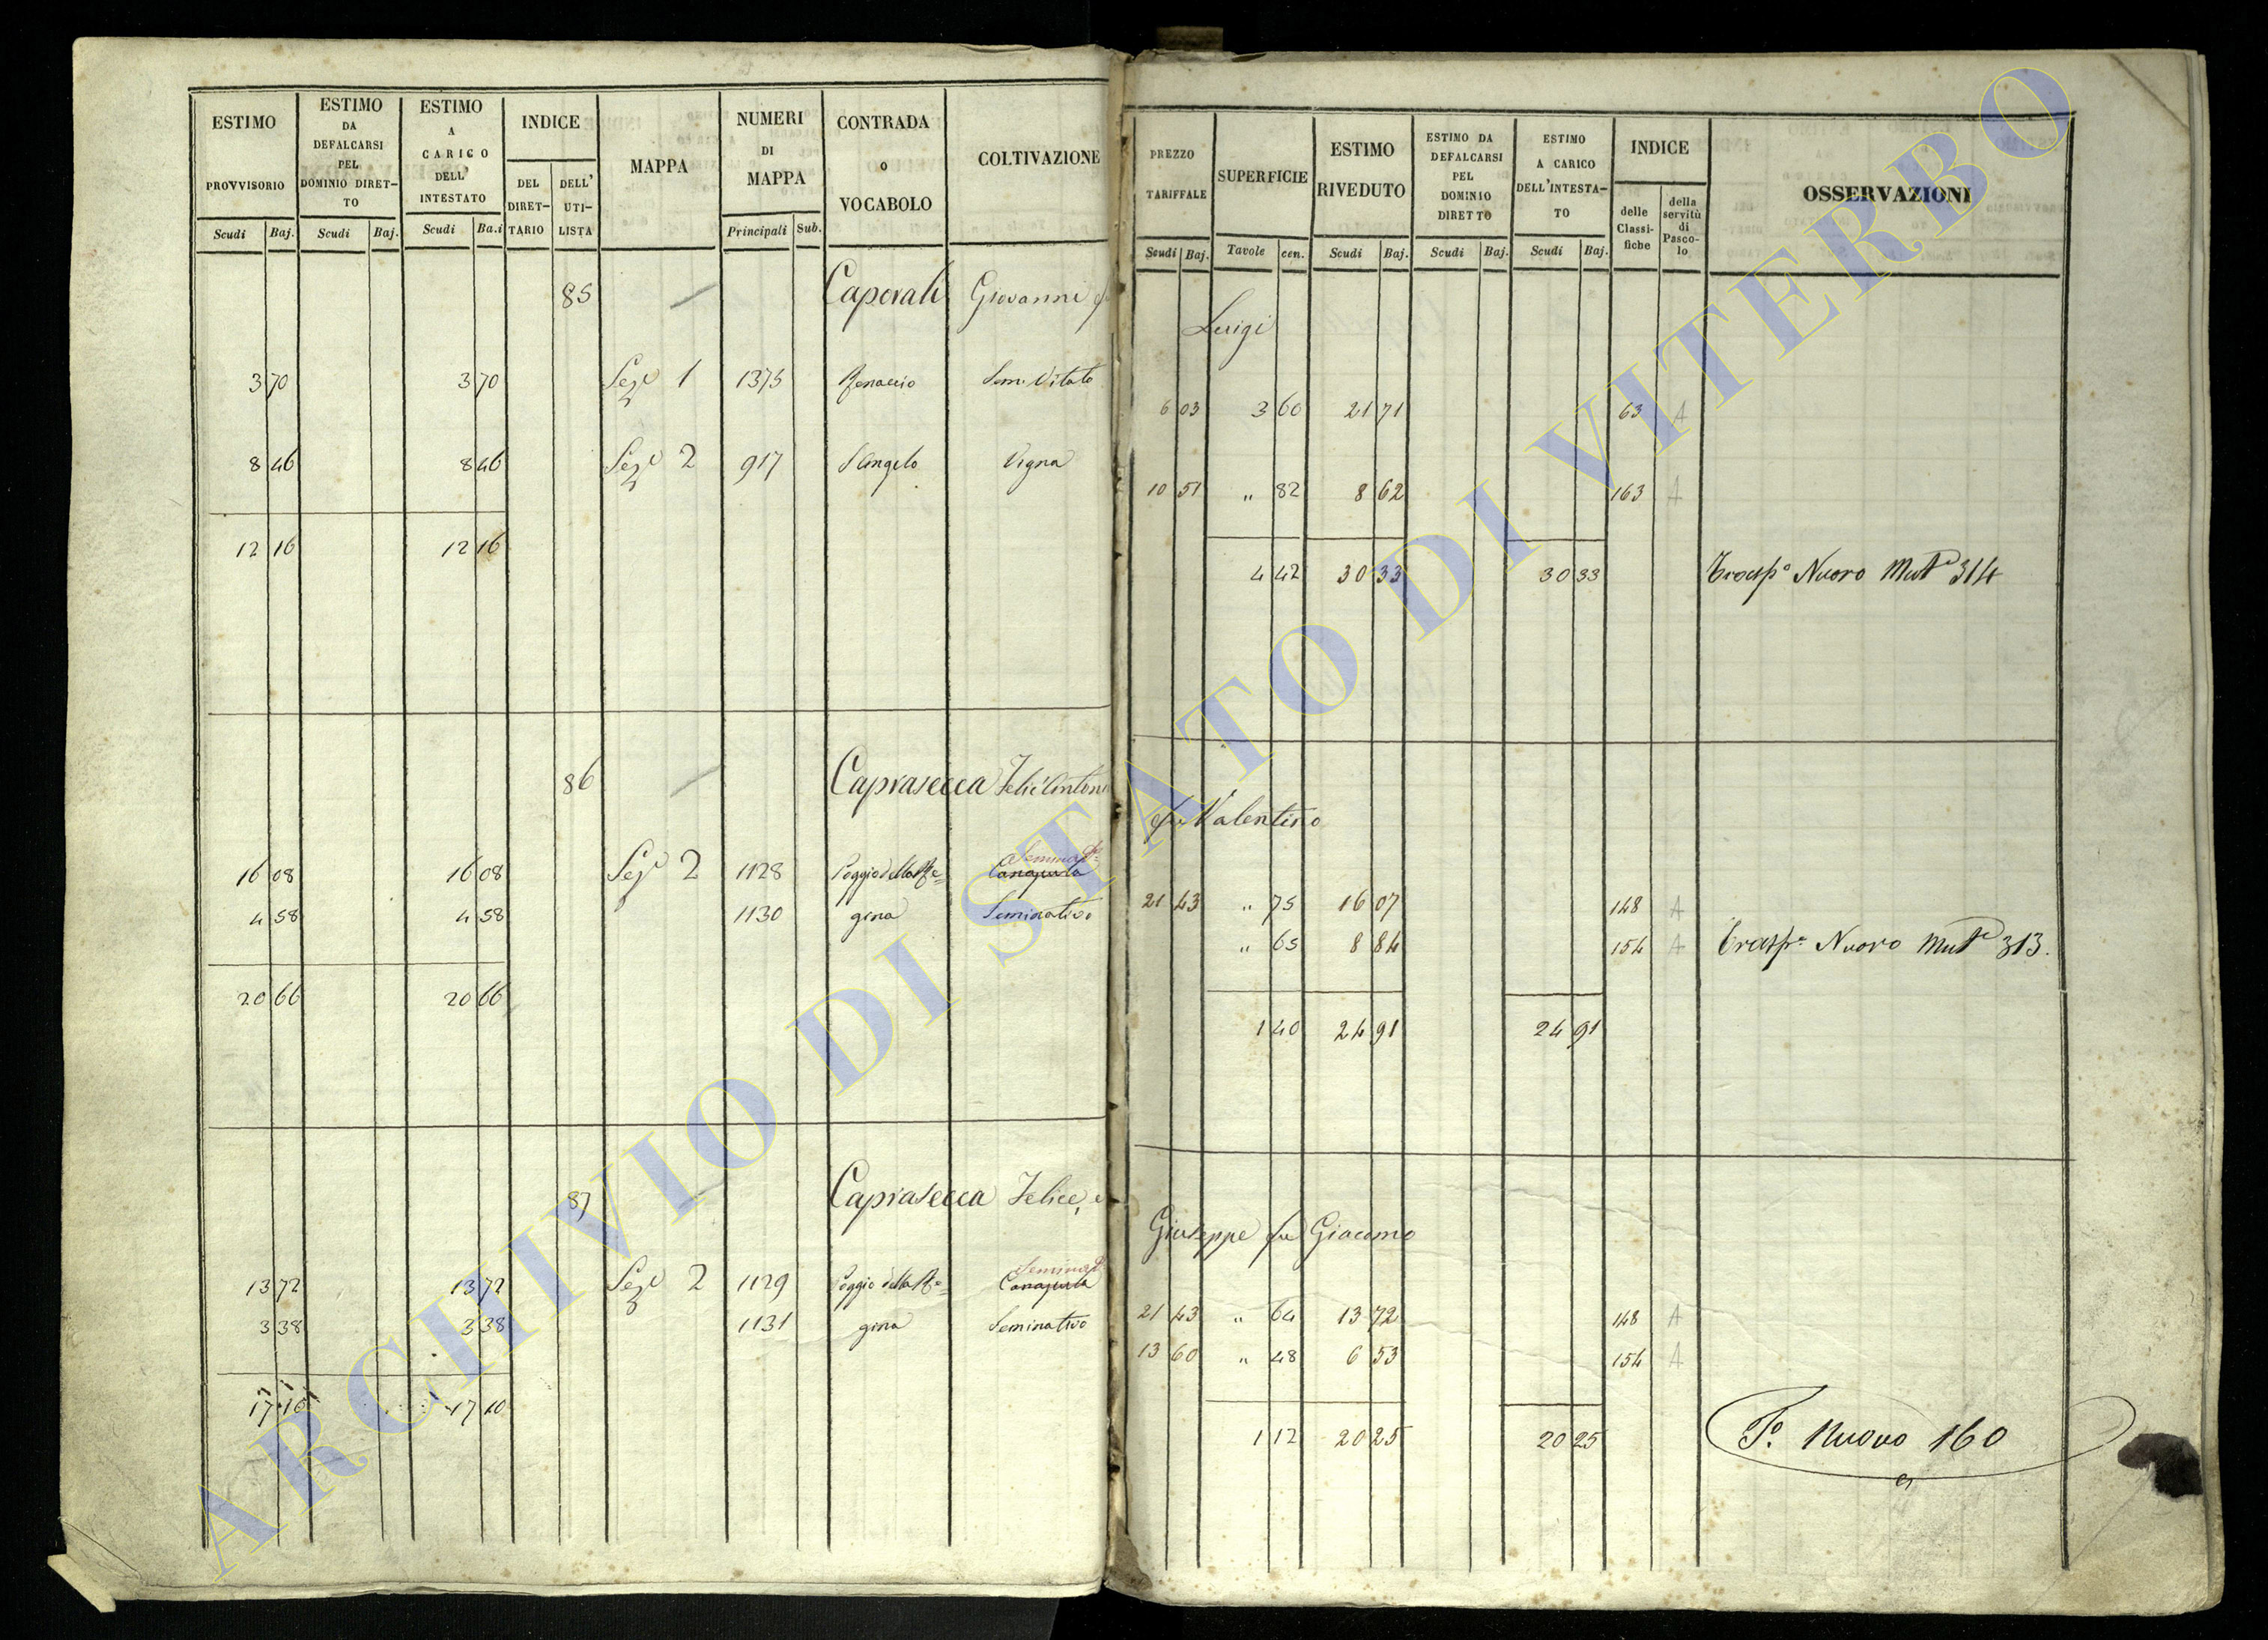 ESTIMO PROVVISORIO | ESTIMO DA DEFALCARSI PEL DOMINIO DIRETTO | ESTIMO A CARICO DELL' INTESTATO | INDICE | MAPPA | NUMERI DI MAPPA | CONTRADA O VOCABOLO | COLTIVAZIONE | PREZZO TARIFFALE | SUPERFICIE | ESTIMO RIVEDUTO | ESTIMO DA DEFALCARSI PEL DOMINIO DIRETTO | ESTIMO A CARICO DELL'INTESTATO | INDICE | OSSERVAZIONI
DEL DIRETTARIO | DELL' UTILISTA | delle Classifiche | della servitù di Pascolo
Scudi | Baj. | Scudi | Baj. | Scudi | Ba.i | Principali | Sub. | Scudi | Baj. | Tavole | cen. | Scudi | Baj. | Scudi | Baj. | Scudi | Baj.
85 | Caporali Giovanni fu Luigi
3 70 | 3 70 | Sez.e 1 | 1375 | Renaccio | Sem. Vitato | 6 03 | 3 60 | 21 71 | 63 | A
8 46 | 8 46 | Sez.e 2 | 917 | S Angelo | Vigna | 10 51 | " 82 | 8 62 | 163 | A
12 16 | 12 16 | 4 42 | 30 33 | 30 33 | Trasp.o Nuovo Mut.e 314
86 | Caprasecca Felic'Antonio fu Valentino
16 08 | 16 08 | Sez.e 2 | 1128 | Poggio della Re= | Canapula Seminat.o | 21 43 | " 75 | 16 07 | 148 | A
4 58 | 4 58 | 1130 | gina | Seminativo | " 65 | 8 84 | 154 | A | Trasp.o Nuovo Mut.e 313.
20 66 | 20 66 | 1 40 | 24 91 | 24 91
87 | Caprasecca Felice, e Giuseppe fu Giacomo
13 72 | 13 72 | Sez.e 2 | 1129 | Poggio della Re= | Canapula Seminat.o | 21 43 | " 64 | 13 72 | 148 | A
3 38 | 3 38 | 1131 | gina | Seminativo | 13 60 | " 48 | 6 53 | 154 | A
17 10 | 17 10 | 1 12 | 20 25 | 20 25 | T.o Nuovo 160
ARCHIVIO DI STATO DI VITERBO